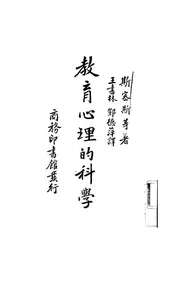 斯密斯等著
王書林 鄧德萍譯
教育心理的科學
商務印書館發行